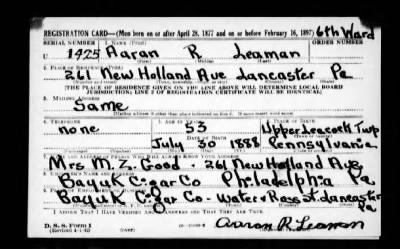 REGISTRATION CARD—(Men born on or after April 28, 1877 and on or before February 16, 1897) 6th Ward
SERIAL NUMBER 1. NAME (Print) ORDER NUMBER
U 1925 Aaron R Leaman
2. PLACE OF RESIDENCE (Print)
261 New Holland Ave Lancaster Pa
[THE PLACE OF RESIDENCE GIVEN ON THE LINE ABOVE WILL DETERMINE LOCAL BOARD
JURISDICTION; LINE 2 OF REGISTRATION CERTIFICATE WILL BE IDENTICAL]
3. MAILING ADDRESS
Same
4. TELEPHONE 5. AGE IN YEARS 6. PLACE OF BIRTH
none 53 Upper Leacock Twp
DATE OF BIRTH
July 30 1888 Pennsylvania
7. NAME AND ADDRESS OF PERSON WHO WILL ALWAYS KNOW YOUR ADDRESS
Mrs M. Z. Good - 261 New Holland Ave
8. EMPLOYER'S NAME AND ADDRESS
Bayuk Cigar Co Philadelphia Pa.
9. PLACE OF EMPLOYMENT OR BUSINESS
Bayuk Cigar Co - Water & Rose St. Lancaster
Pa
I AFFIRM THAT I HAVE VERIFIED ABOVE ANSWERS AND THAT THEY ARE TRUE.
D. S. S. Form 1
(Revised 4-1-42) (over) Aaron R Leaman